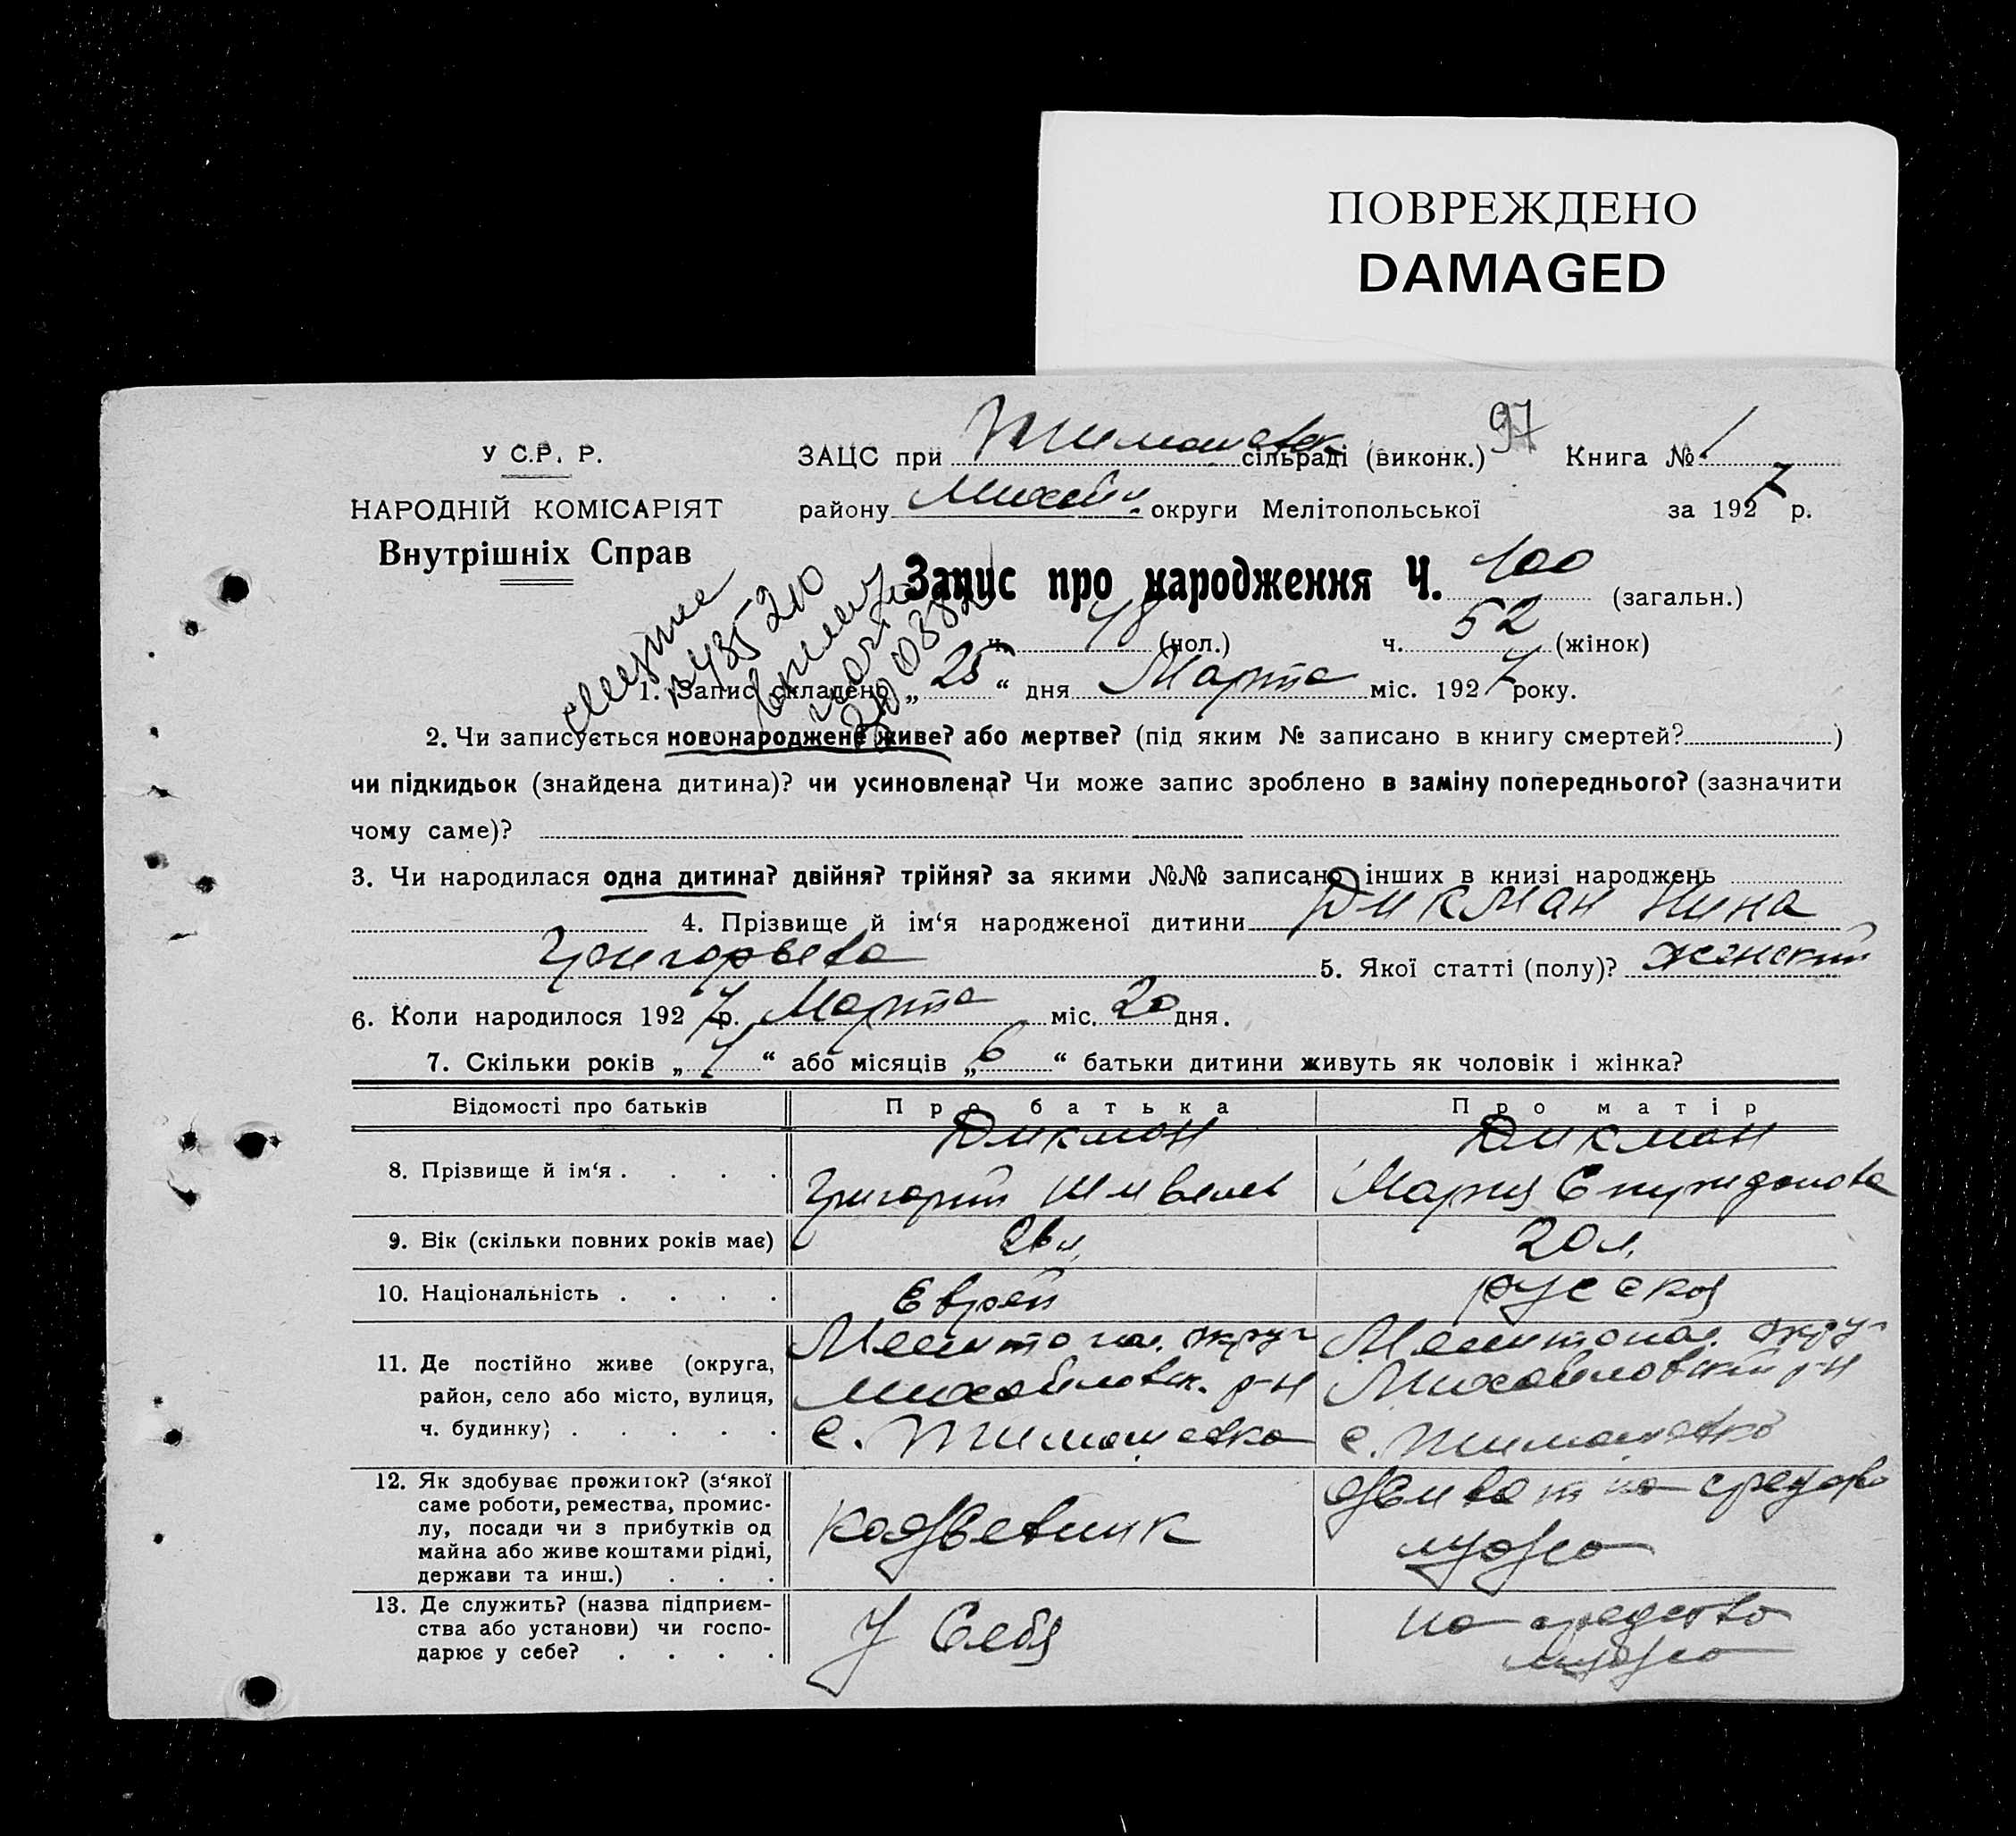 ПОВРЕЖДЕНО
DAMAGED
У С.Р. Р.
НАРОДНІЙ КОМІСАРІЯТ
Внутрішніх Справ
ЗАЦС при Тимошевск сільраді (виконк.) 97 Книга № 1
району Михайл. округи Мелітопольської за 1927 р.
Запис про народження Ч. 100 (загальн.)
ч. 48 (чол.) ч. 52 (жінок)
1. Запис складено „ 25 “ дня Марта міс. 1927 року.
2. Чи записується новонароджене живе? або мертве? (під яким № записано в книгу смертей? )
чи підкидьок (знайдена дитина)? чи усиновлена? Чи може запис зроблено в заміну попереднього? (зазначити
чому саме)?
3. Чи народилася одна дитина? двійня? трійня? за якими №№ записано інших в книзі народжень
4. Прізвище й ім‘я народженої дитини Дикман Нина
Григорьева 5. Якої статті (полу)? женский
6. Коли народилося 1927 р. Марта міс. 20 дня.
7. Скільки років „ 1 “ або місяців „ 6 “ батьки дитини живуть як чоловік і жінка?
Відомості про батьків Про батька Про матір
8. Прізвище й ім‘я . . . . Дикман Дикман
Григорий Мария
9. Вік (скільки повних років має) 26 л. 20 л.
10. Національність . . . . Еврей русская
11. Де постійно живе (округа, Мелитопол. округ Мелитопол. округ
район, село або місто, вулиця, Михайловск. р-н Михайловский р-н
ч. будинку) . . . . . с. Тимошевка с. Тимошевка
12. Як здобуває прожиток? (з‘якої
саме роботи, ремества, промис-
лу, посади чи з прибутків од
майна або живе коштами рідні,
держави та инш.) . . . мужа
13. Де служить? (назва підприєм-
ства або установи) чи госпо-
дарює у себе? . . . . У Себя на средства
мужа